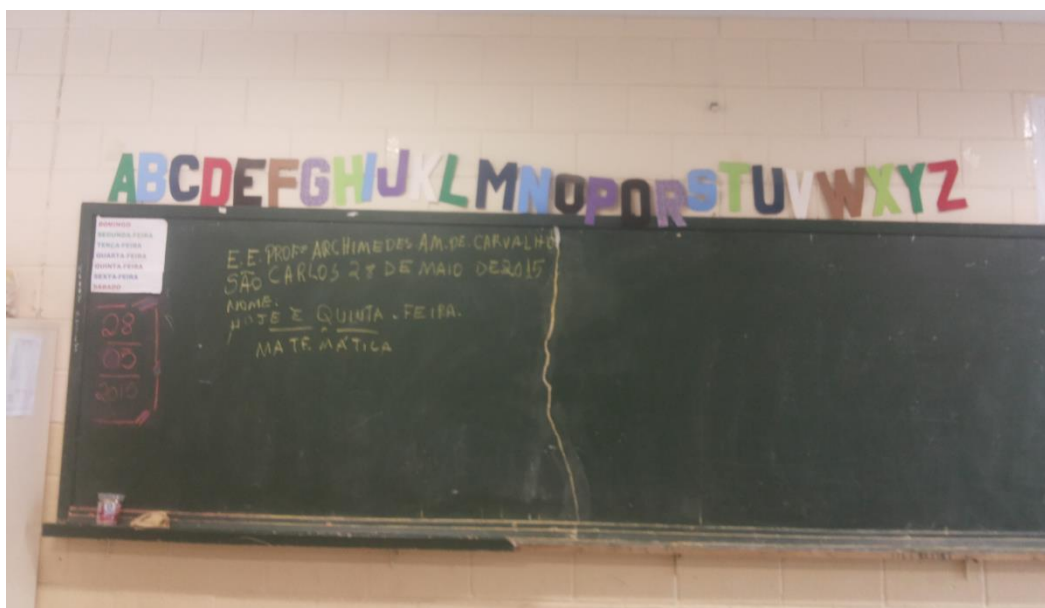 ABCDEFGHIJKLMNOPQRSTUVWXYZ
DOMINGO
SEGUNDA-FEIRA
TERÇA-FEIRA
QUARTA-FEIRA
QUINTA-FEIRA
SEXTA-FEIRA
SÁBADO
28
05
2015
E.E. PROFº ARCHIMEDES AM. DE. CARVALHO
SÃO CARLOS 28 DE MAIO DE 2015
NOME.
HOJE É QUINTA-FEIRA.
MATEMÁTICA